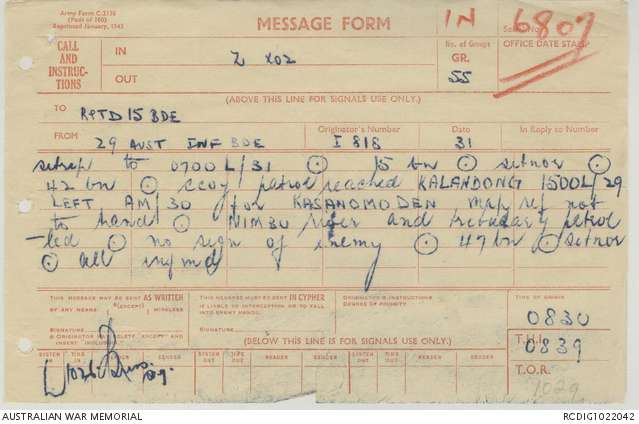 Army Form C.2136
(Pads of 100)
Reprinted January, 1943
MESSAGE FORM
IN 6807
Serial No.
CALL AND INSTRUC-TIONS
IN
Z X02
No. of Groups
GR.
55
OFFICE DATE STAMP
OUT
(ABOVE THIS LINE FOR SIGNALS USE ONLY.)
TO
RPTD 15 BDE
FROM
29 AUST INF BDE
Originator's Number
I 818
Date
31
In Reply to Number
sitrep to 0700L/31 ⊙ 15 bn ⊙ sitnor ⊙
42 bn ⊙ ccoy patrol reached KALANDONG 1500L/29
LEFT AM/30 for KASANOMODEN map ref not
to hand ⊙ NIM 30 river and tributary patrol
-led ⊙ no sign of enemy ⊙ 47 bn ⊙ sitnor
⊙ all infmd
THIS MESSAGE MAY BE SENT AS WRITTEN
BY ANY MEANS (EXCEPT) WIRELESS
SIGNATURE
THIS MESSAGE MUST BE SENT IN CYPHER
IF LIABLE TO INTERCEPTION OR TO FALL
INTO ENEMY HANDS.
SIGNATURE
ORIGINATOR'S INSTRUCTIONS
DEGREE OF PRIORITY
TIME OF ORIGIN
0830
T.H.I.
0839
T.O.R.
1029
(BELOW THIS LINE IS FOR SIGNALS USE ONLY.)
SYSTEM IN
TIME IN
READER
SENDER
SYSTEM OUT
TIME OUT
READER
SENDER
SYSTEM OUT
TIME OUT
READER
SENDER
AUSTRALIAN WAR MEMORIAL
RCDIG1022042